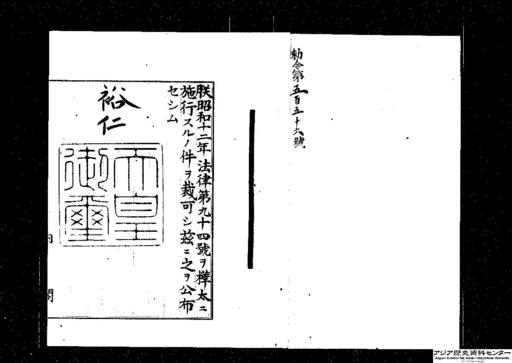 勅令第五百五十六號
朕昭和十二年法律第九十四號ヲ樺太ニ
施行スルノ件ヲ裁可シ茲ニ之ヲ公布
セシム
裕仁
天皇
御璽
内閣
アジア歴史資料センター
Japan Center for Asian Historical Records